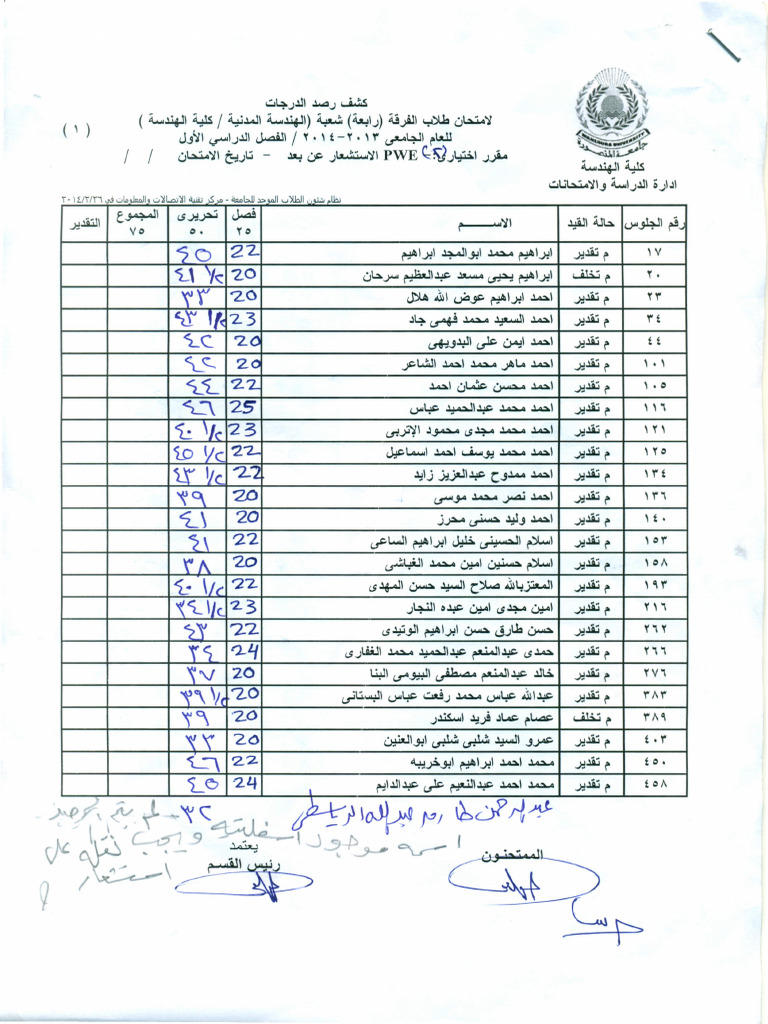 كشف رصد الدرجات
لامتحان طلاب الفرقة (رابعة) شعبة (الهندسة المدنية / كلية الهندسة )
(١)
للعام الجامعى ٢٠١٣-٢٠١٤ / الفصل الدراسي الأول
مقرر اختياري(٥) PWE الاستشعار عن بعد - تاريخ الامتحان / /
MANSOURA UNIVERSITY
جامعة المنصورة
كلية الهندسة
ادارة الدراسة والامتحانات
نظام شئون الطلاب الموحد للجامعة - مركز تقنية الاتصالات والمعلومات في ٢٠١٤/٢/٢٦
رقم الجلوس حالة القيد الاســـم فصل ٢٥ تحريرى ٥٠ المجموع ٧٥ التقدير
١٧ م تقدير ابراهيم محمد ابوالمجد ابراهيم 22 ٤٥
٢٠ م تخلف ابراهيم يحيى مسعد عبدالعظيم سرحان 20 ٤١ ١/٢
٢٣ م تقدير احمد ابراهيم عوض الله هلال 20 ٣٣
٣٤ م تقدير احمد السعيد محمد فهمى جاد 23 ٤٣ ١/٢
٤٤ م تقدير احمد ايمن على البدويهى 20 ٤٢
١٠١ م تقدير احمد ماهر محمد احمد الشاعر 20 ٤٢
١٠٥ م تقدير احمد محسن عثمان احمد 22 ٤٤
١١٦ م تقدير احمد محمد عبدالحميد عباس 25 ٤٦
١٢١ م تقدير احمد محمد مجدى محمود الإتربى 23 ٤٠ ١/٢
١٢٥ م تقدير احمد محمد يوسف احمد اسماعيل 22 ٤٥ ١/٢
١٣٤ م تقدير احمد ممدوح عبدالعزيز زايد 22 ٤٣ ١/٢
١٣٦ م تقدير احمد نصر محمد موسى 20 ٣٩
١٤٠ م تقدير احمد وليد حسنى محرز 20 ٤١
١٥٣ م تقدير اسلام الحسينى خليل ابراهيم الساعى 22 ٤١
١٥٨ م تقدير اسلام حسنين امين محمد الغباشى 20 ٣٨
١٩٣ م تقدير المعتزبالله صلاح السيد حسن المهدى 22 ٤٠ ١/٢
٢١٦ م تقدير امين مجدى امين عبده النجار 23 ٣٤ ١/٢
٢٦٢ م تقدير حسن طارق حسن ابراهيم الوتيدى 22 ٤٣
٢٦٦ م تقدير حمدى عبدالمنعم عبدالحميد محمد الغفارى 24 ٣٤
٢٧٦ م تقدير خالد عبدالمنعم مصطفى البيومى البنا 20 ٣٧
٣٨٣ م تقدير عبدالله عباس محمد رفعت عباس البستانى 20 ٣٩ ١/٢
٣٨٩ م تخلف عصام عماد فريد اسكندر 20 ٣٩
٤٠٣ م تقدير عمرو السيد شلبى شلبى ابوالعنين 20 ٣٣
٤٥٠ م تقدير محمد احمد ابراهيم ابوخريبه 22 ٤٦
٤٥٨ م تقدير محمد احمد عبدالنعيم على عبدالدايم 24 ٤٥
عبدالرحمن طارق عبدالله ٣٢ لم يتم
اسمه موجود ويجب نقله
استشعار
الممتحنون
يعتمد
رئيس القسم